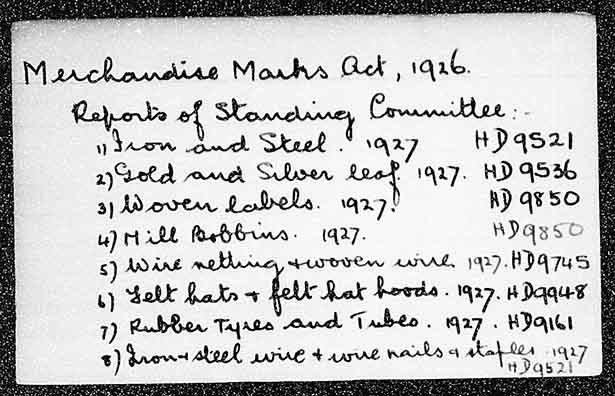 Merchandise Marks Act, 1926.
Reports of Standing Committee:-
1) Iron and Steel. 1927 HD9521
2) Gold and Silver leaf. 1927. HD9536
3) Woven labels. 1927. HD9850
4) Mill Bobbins. 1927. HD9850
5) Wire netting + woven wire. 1927. HD9745
6) Felt hats + felt hat hoods. 1927. HD9948
7) Rubber Tyres and Tubes. 1927. HD9161
8) Iron + steel wire + wire nails + staples. 1927
HD9521